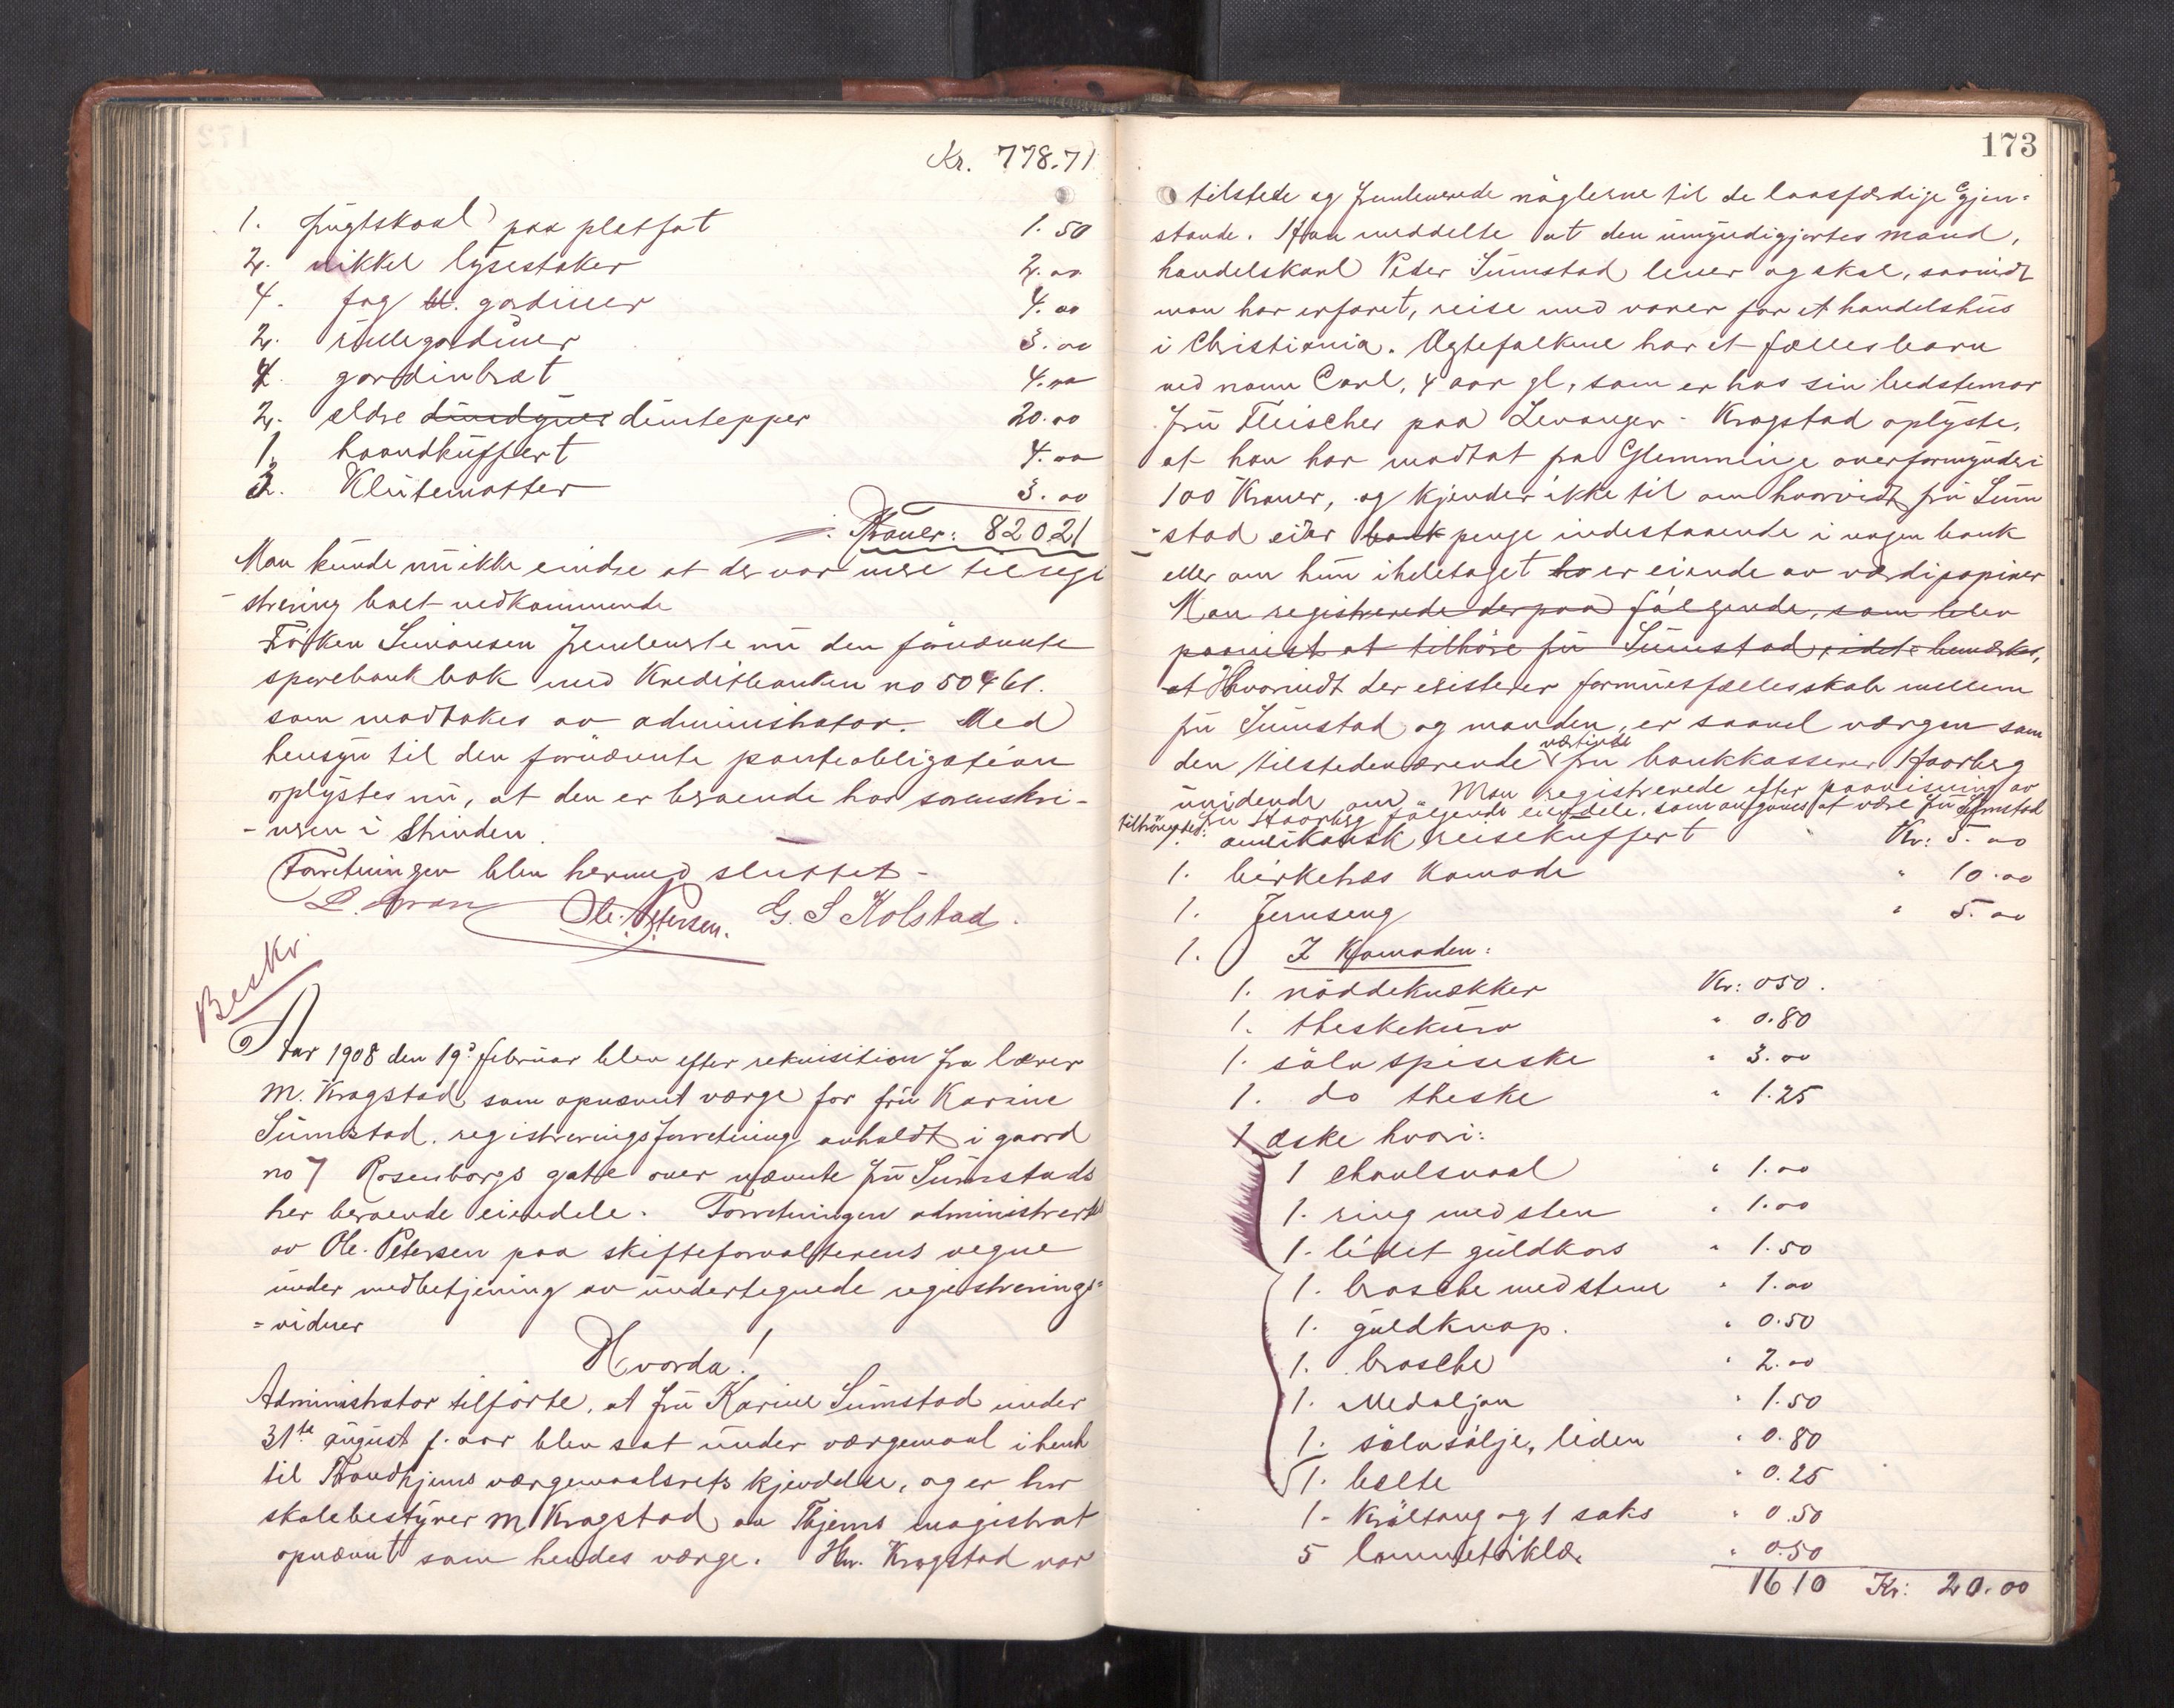 Kr. 778.71
1. frugtskaal paa pletfat 1.50
2. nikkel lysestaker 2.00
4. fag bl. gardiner 4.00
2. rullegardiner 3.00
4. gardinbræt 4.00
2. ældre dundyner duntepper 20.00
1. haandkuffert 4.00
3. Klutematter 3.00
Kroner: 820.21
Man kunde nu ikke eindse at der var mere til regi
strering boet vedkommende
Frøken Simonsen fremlenste nu den førnævnte
sparebankbok med Kreditbanken no 50461.
som modtakes av administrator. Med
hensyn til den fornævnte panteobligation
oplystes nu, at den er beroende hos sorenskri-
-veren i Strinden.
Forretningen blev hermed sluttet -
Ole. Petersen. G. S Kolstad.
Beskr.
Aar 1908 den 19de februar blev efter rekvisition fra lærer
M. Kragstad som opnævnt værge for fru Karine
Sumstad. registreringsforretning avholdt i gaard
no 7 Rosenborgs gate over nævnte fru Sumstads
her beroende eiendele. Forretningen administrert
av Ole. Petersen paa skifteforvalterens vegne
under medbetjening av undertegnede registrerings=
=vidner
Hvorda!
Administrator tilførte, at fru Karine Sumstad under
31te august f. aar blev sat under værgemaal i henh
til Trondhjems værgemaalsrets kjendelse, og er hr
skolebestyrer M Kragstad av Thjems magistrat
opnævnt som hendes værge. Hr. Kragstad var
173
tilstede og fremleverede nøglerne til de laasfærdige Gjen=
stande. Han meddelte at den umyndigjortes mand,
handelskarl Peder Sumstad lever og skal, saavidt
man har erfaret, reise med varer for et handelshus
i Christiania. Ægtefolkene har et fælles barn
ved navn Carl, 4 aar gl, som er hos sin bedstemor
Fru Fleischer paa Levanger - Kragstad oplyste,
at han har modtat fra Glemminge overformynderi
100 Kroner, og kjender ikke til om hvorvidt fru Sum
-stad eier bank penge indestaaende i nogen bank
eller om hun ihletaget ha er eiende av værdipapirer
Man registrerede derpaa følgende, som blev
paavist at tilhøre fru Sumstad, idet bemærkes,
at Hvorvidt der existerer formuesfællesskab mellem
fru Sumstad og manden, er saavel værgen som
den tilstedeværende værtinde fru bankkasserer Haarberg
uvidende om Man registrerede efter paavisning av
fru Haarberg følgende eiendele, som angaves at være fru Sumstad
tilhørighed:
1. amerikansk reisekuffert Kr: 5.00
1. birketræs Komode " 10.00
1. Jernseng " 5.00
1. I Komoden:
1. nøddeknækker Kr: 050.
1. theskekurv " 0.80
1. sølv spiseske " 3.00
1. do theske " 1.25
1 æske hvori:
1 chaulsnaal " 1.00
1. ring med sten " 1.00
1. lidet guldkors " 1.50
1. brosche med stene " 1.00
1. guldknap. " 0.50
1. brosche " 2.00
1. Medaljon " 1.50
1. sølvsølje, liden " 0.80
1. belte " 0.25
1. Krøltang og 1 saks " 0.50
5 lommetørklæ. " 0.50
1610 Kr: 20.00